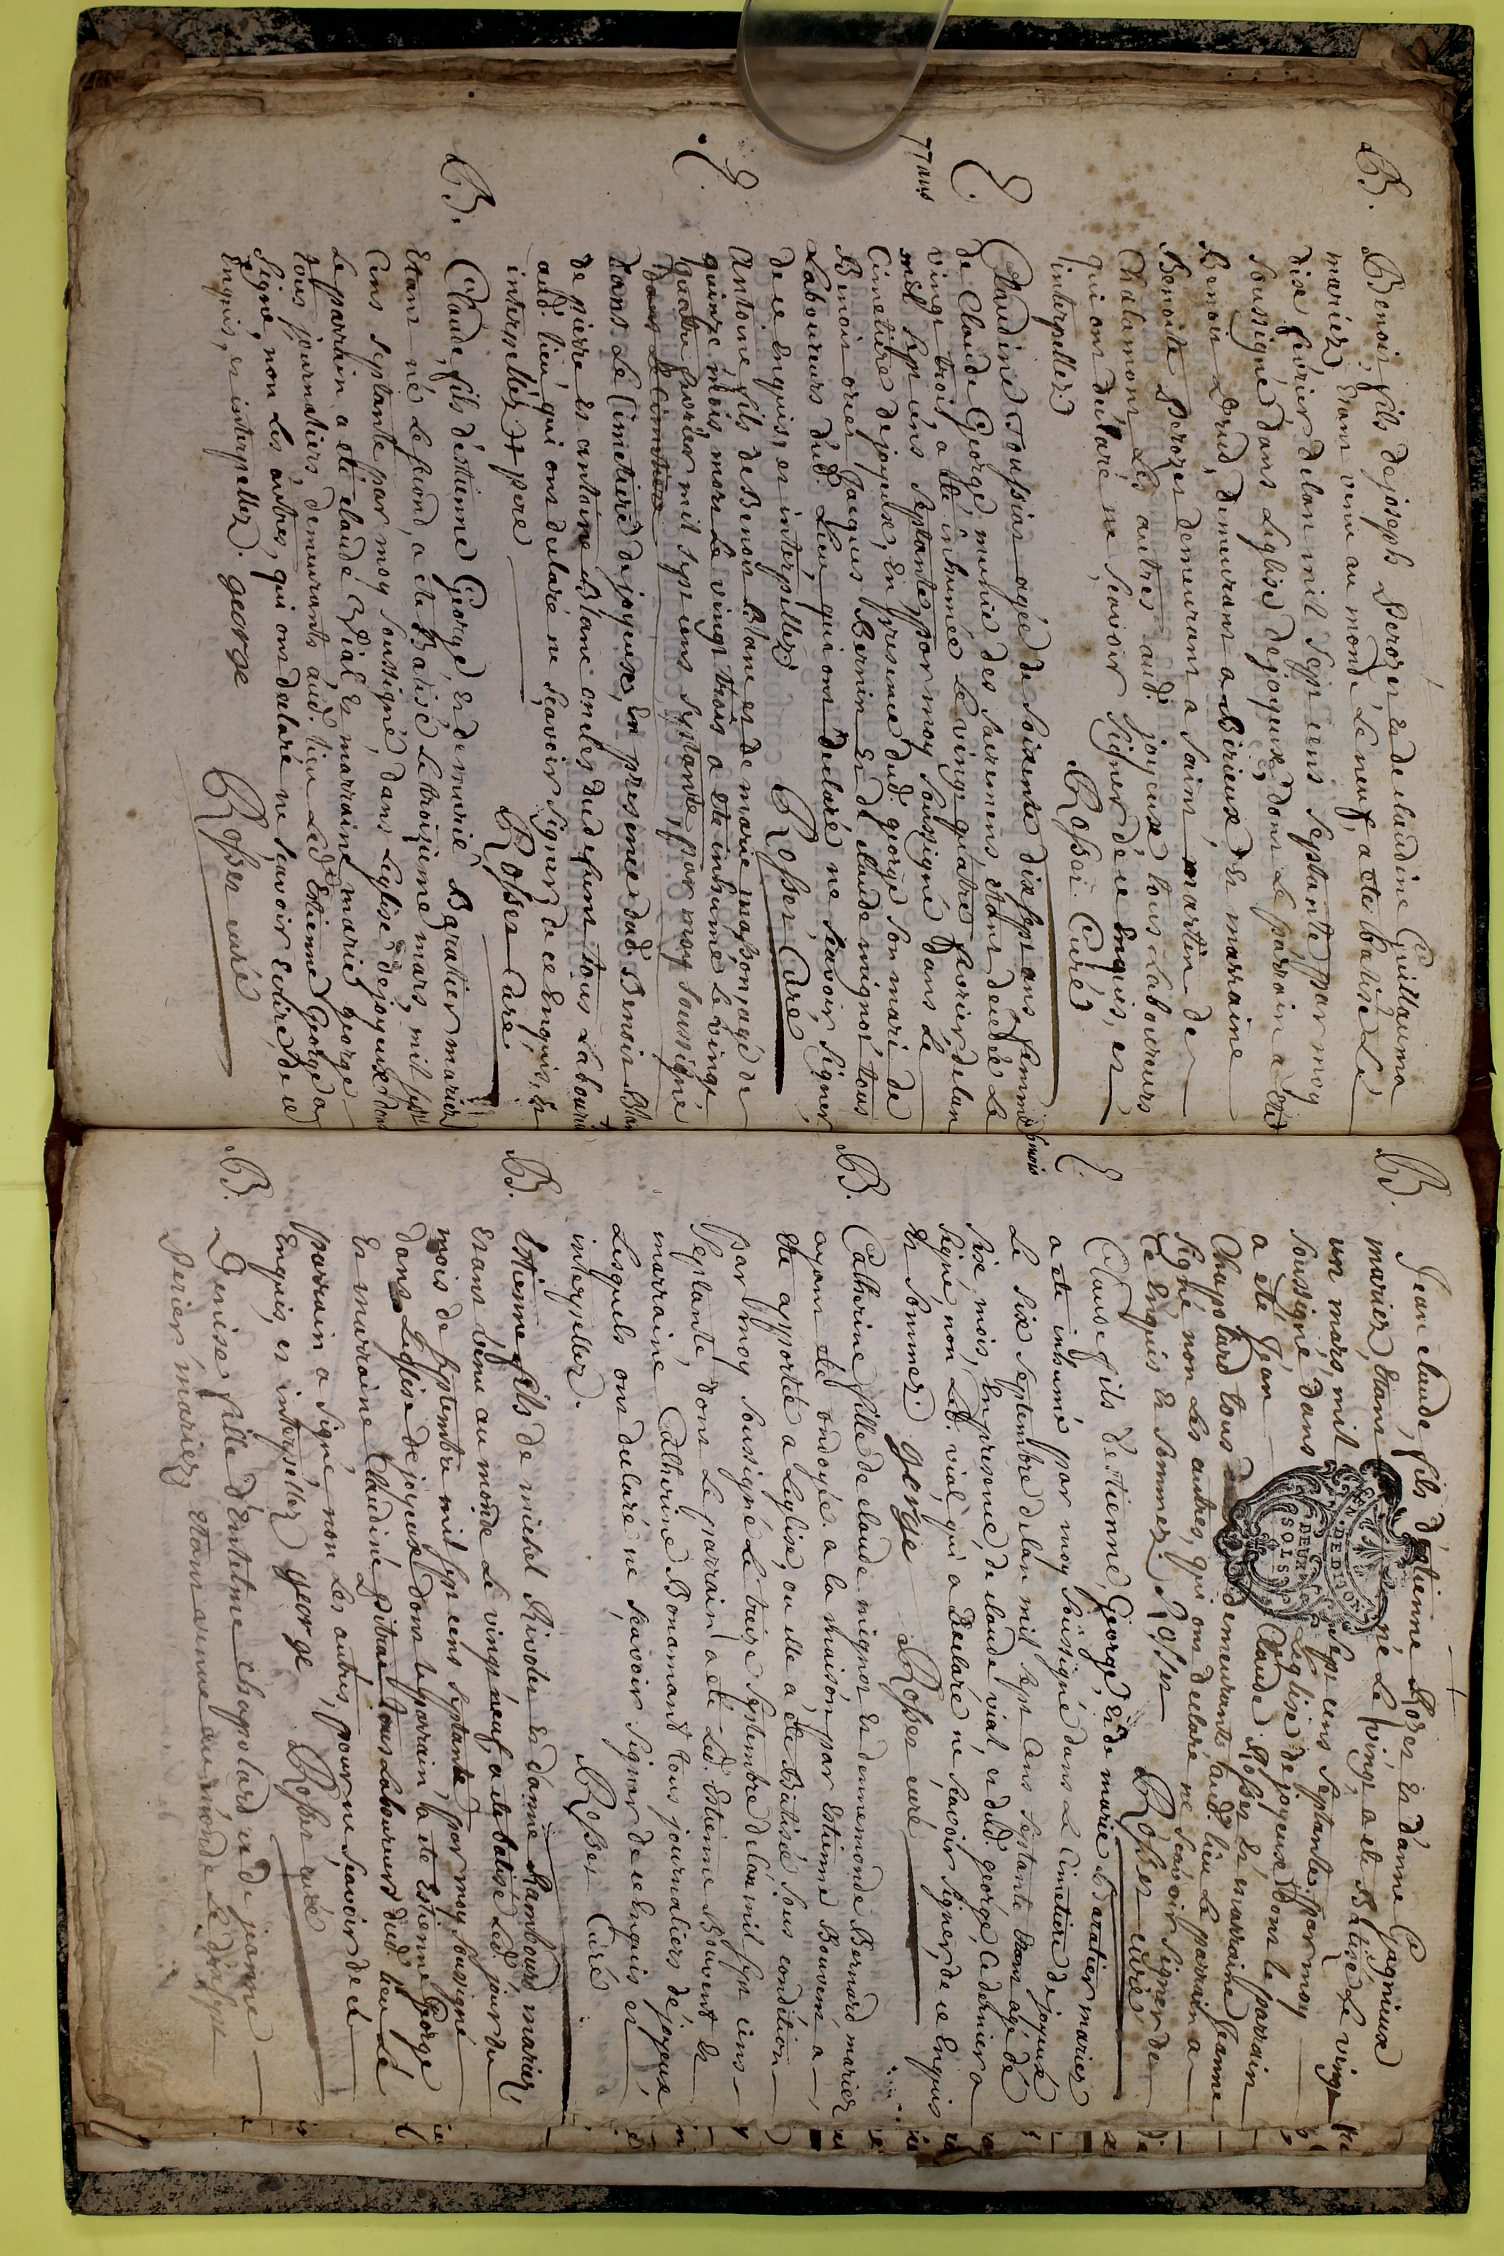 B.
Benoit fils de joseph Perozet et de claudine Guillaumo
mariez étant venu au monde le neuf, a été batisé Le
dixe fevrier de lan mil sept cens septante, par moy
soussigné dans L'eglise de joyeux, dont Le parrain a été
Benoit Brud, demeurant a Birieux et marraine
Benoite Perozet demeurant a saint martin de
Chalamont Les autres aud. joyeux tous Laboureurs
qui ont déclaré ne scavoir signer de ce Enquis, et
interpellez
Rosset Curé
E.
77 ans
Claudine agée de soixante dix sept ans, femme
de Claude George munie des sacremens étant decedée Le
vingt trois a été inhumée Le vingt quatre fevrier de lan
mil sept cens septante par moy soussigné Dans Le
Cimetiere de joyeux, En presence dud. george son mari de
Benoit Jacques Bernin et de claude mignot tous
Laboureurs dud. Lieu, qui ont declaré ne scavoir signer
de ce Enquis, et interpellez
Rosset Curé
E.
Antoine fils de Benoit Blanc et de marie masson, agé de
quinze mois mort Le vingt trois a été inhumé Le vingt
quatre fevrier mil sept cens septante, par moy soussigné
dans Le Cimetiere
dans Le Cimetiere de joyeux, En presence dud. Benoit Blanc
de pierre et antoine Blanc oncles du defunt tous Laboureurs
aud. lieu, qui ont declaré ne scavoir signer de ce Enquis, et
interpellez + pere
Rosset Curé
B.
Claude, fils d'Estienne George, et de marie Baratier mariez
Etant né Le second, a été Batisé Le troizieme mars, mil sept
Cens septante par moy soussigné, dans L'eglise de joyeux dont
Le parrain a été claude Vial et marraine marie george
tous journaliers, demeurants aud. lieu Led. Estienne George a
signé, non Les autres, qui ont declaré ne scavoir ecrire, de ce
Enquis, et interpellez. george
Rosset curé
B.
Jean claude, fils d'Estienne Rozet et d'anne Gagnieux
mariez, étant né Le vingt, a été Batisé Le vingt
un mars, mil sept cens septante, par moy
soussigné dans L'eglise de joyeux dont le parrain
a été Jean Claude Rosset et marraine Jeanne
Chapolard tous demeurants aud. lieu Le parrain a
signé non Les autres, qui ont declaré ne scavoir signer de
ce Enquis et sommez. Rosset
Rosset curé
E.
6 mois
Claude fils d'estienne, George, et de marie Baratier mariez
a été inhumé par moy soussigné dans Le Cimetiere de joyeux
Le six septembre de lan mil sept cens septante étant agé de
six mois, En presence, de claude vial, et dud. george, ce dernier a
signé non Led. vial qui a Declaré ne scavoir signer, de ce Enquis
et sommez. george
Rosset curé
B.
Catherine fille de claude mignot et d'ennemonde Bernard mariez
ayant été ondoyée a la maison par Estienne Bouvent a
été apportée a L'eglise, ou elle a été Batisée sous condition
par moy soussigné Le treize septembre de lan mil sept cens
septante, dont Le parrain a été Led. Estienne Bouvent et
marraine Catherine Bonamant tous journaliers de joyeux
Lesquels ont declaré ne scavoir signer de ce Enquis et
interpellez.
Rosset Curé
B.
Estienne fils de michel Rivolet et d'anne Rambourd mariez,
Etant venu au monde Le vingt neuf, a été batisé Led. jour du
mois de septembre mil sept cens septante, par moy soussigné
dans L'eglise de joyeux dont Le parrain a été Estienne George
et marraine Claudine Pitrat tous Laboureurs dud. lieu Le
parrain a signé non Les autres, pour ne scavoir de ce
Enquis, et interpellez george
Rosset curé
B.
Denise fille d'Entelme chapolard et de jeanne
Perier mariez étant venue au monde Le dix sept
EN. DE DIJON
DEUX
SOLS